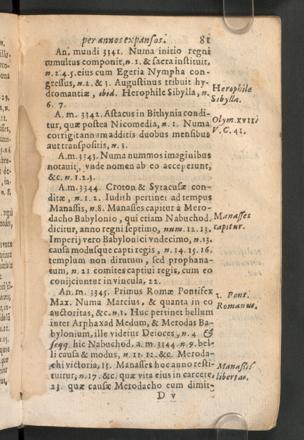 per annos expansos. 81
An. mundi 3341. Numa initio regni
tumultus componit, n. 1. & sacra instituit,
n. 2. 4. 5. eius cum Egeria Nympha con-
gressus, n. 2. & 3. Augustinus tribuit hy-
dromantiæ, ibid. Herophile Sibylla, n.
6. 7.
Herophile
Sibylla.
A. m. 3342. Astacus in Bithynia condi-
tur, quæ postea Nicomedia, n. 1. Numa
corrigit annum additis duobus mensibus
aut transpositis, n. 3.
Olym. XVIII
V. C. 42.
A.m. 3343. Numa nummos imaginibus
notauit, vnde nomen ab eo acceperunt,
&c. n. 1. 2. 3.
A.m. 3344. Croton & Syracusæ con-
ditæ, n. 1. 2. Iudith pertinet ad tempus
Manassis, n. 8. Manasses capitur à Mero-
dacho Babylonio, qui etiam Nabuchod.
dicitur, anno regni septimo, num. 12. 13.
Imperij vero Babylonici vndecimo, n. 13.
causa modusque capti regis, n. 14. 15. 16.
templum non dirutum, sed prophana-
tum, n. 21 comites captiui regis, cum eo
conijciuntur in vincula, 22.
Manasses
capitur.
An. m. 3345. Primus Romæ Pontifex
Max. Numa Marcius, & quanta in eo
auctoritas, &c. n. 1. Huc pertinet bellum
inter Arphaxad Medum, & Merodas Ba-
bylonium, ille videtur Deioces, n. 4. &
seqq. hic Nabuchod. a. m. 3344. n. 9. bel-
li causa & modus, n. 11. 12. &c. Meroda-
chi victoria, 13. Manasses hoc anno resti-
tuitur, n. 17. &c. quæ vita eius in carcere
23. quæ causæ Merodacho cum dimit-
1. Pont.
Romanus.
Manassis
libertas.
D v